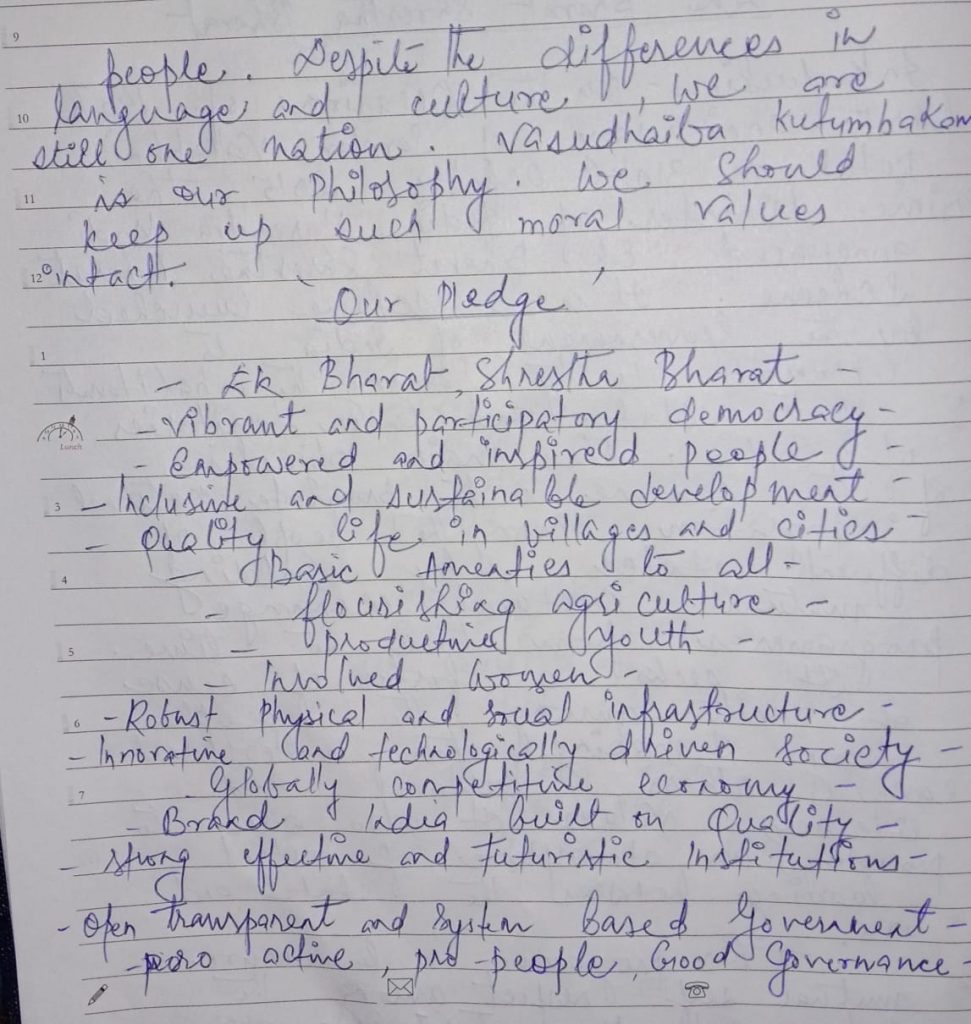 9
people. Despite the differences in
10 language and culture, we are
still one nation. Vasudhaiba kutumbakom
11 is our philosophy. We should
keep up such moral values
12 intact.
'Our Pledge'
1
- Ek Bharat, Shrestha Bharat -
- Vibrant and participatory democracy -
Lunch
- Empowered and inspired people -
3 - Inclusive and sustainable development -
- Quality life in villages and cities -
4 - Basic Amenties to all -
- flourishing agriculture -
5 - productive youth -
- Involved women -
6 - Robust physical and social infrastructure -
- Innovative and technologically driven society -
7 Globally competitive economy -
- Brand India built on Quality -
- strong effective and futuristic Institutions -
- Open transparent and system based Government -
- pro active, pro-people, Good Governance -